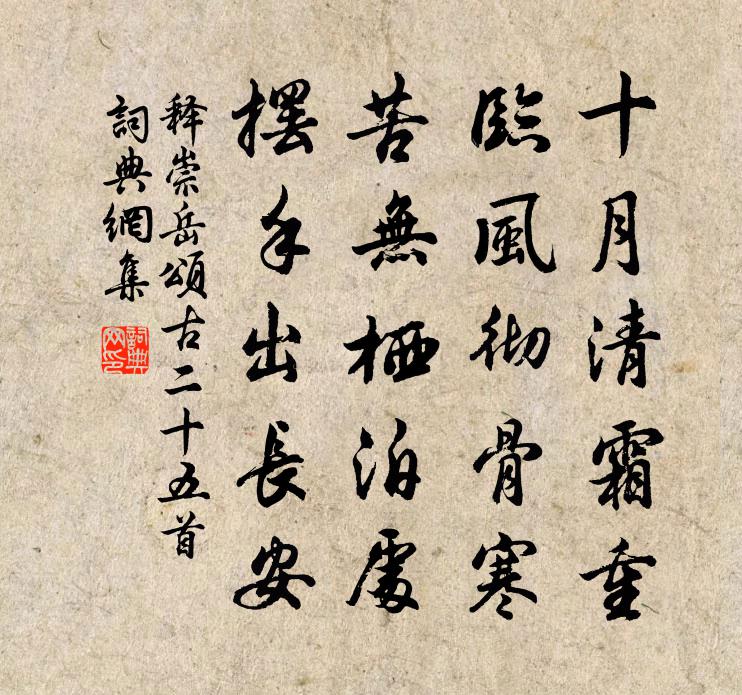 十月清霜重
臨風彻骨寒
苦無栖泊處
擺手出長安
释崇岳頌古二十五首
詞典網集
詞典网印